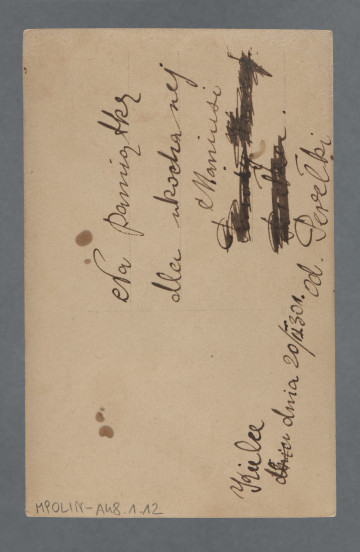 Na pamiątkę
dla ukochanej
Maniusi
od. Perełki
Kielce
dnia 20/IX 30r.
MPOLIN-A48.1.12